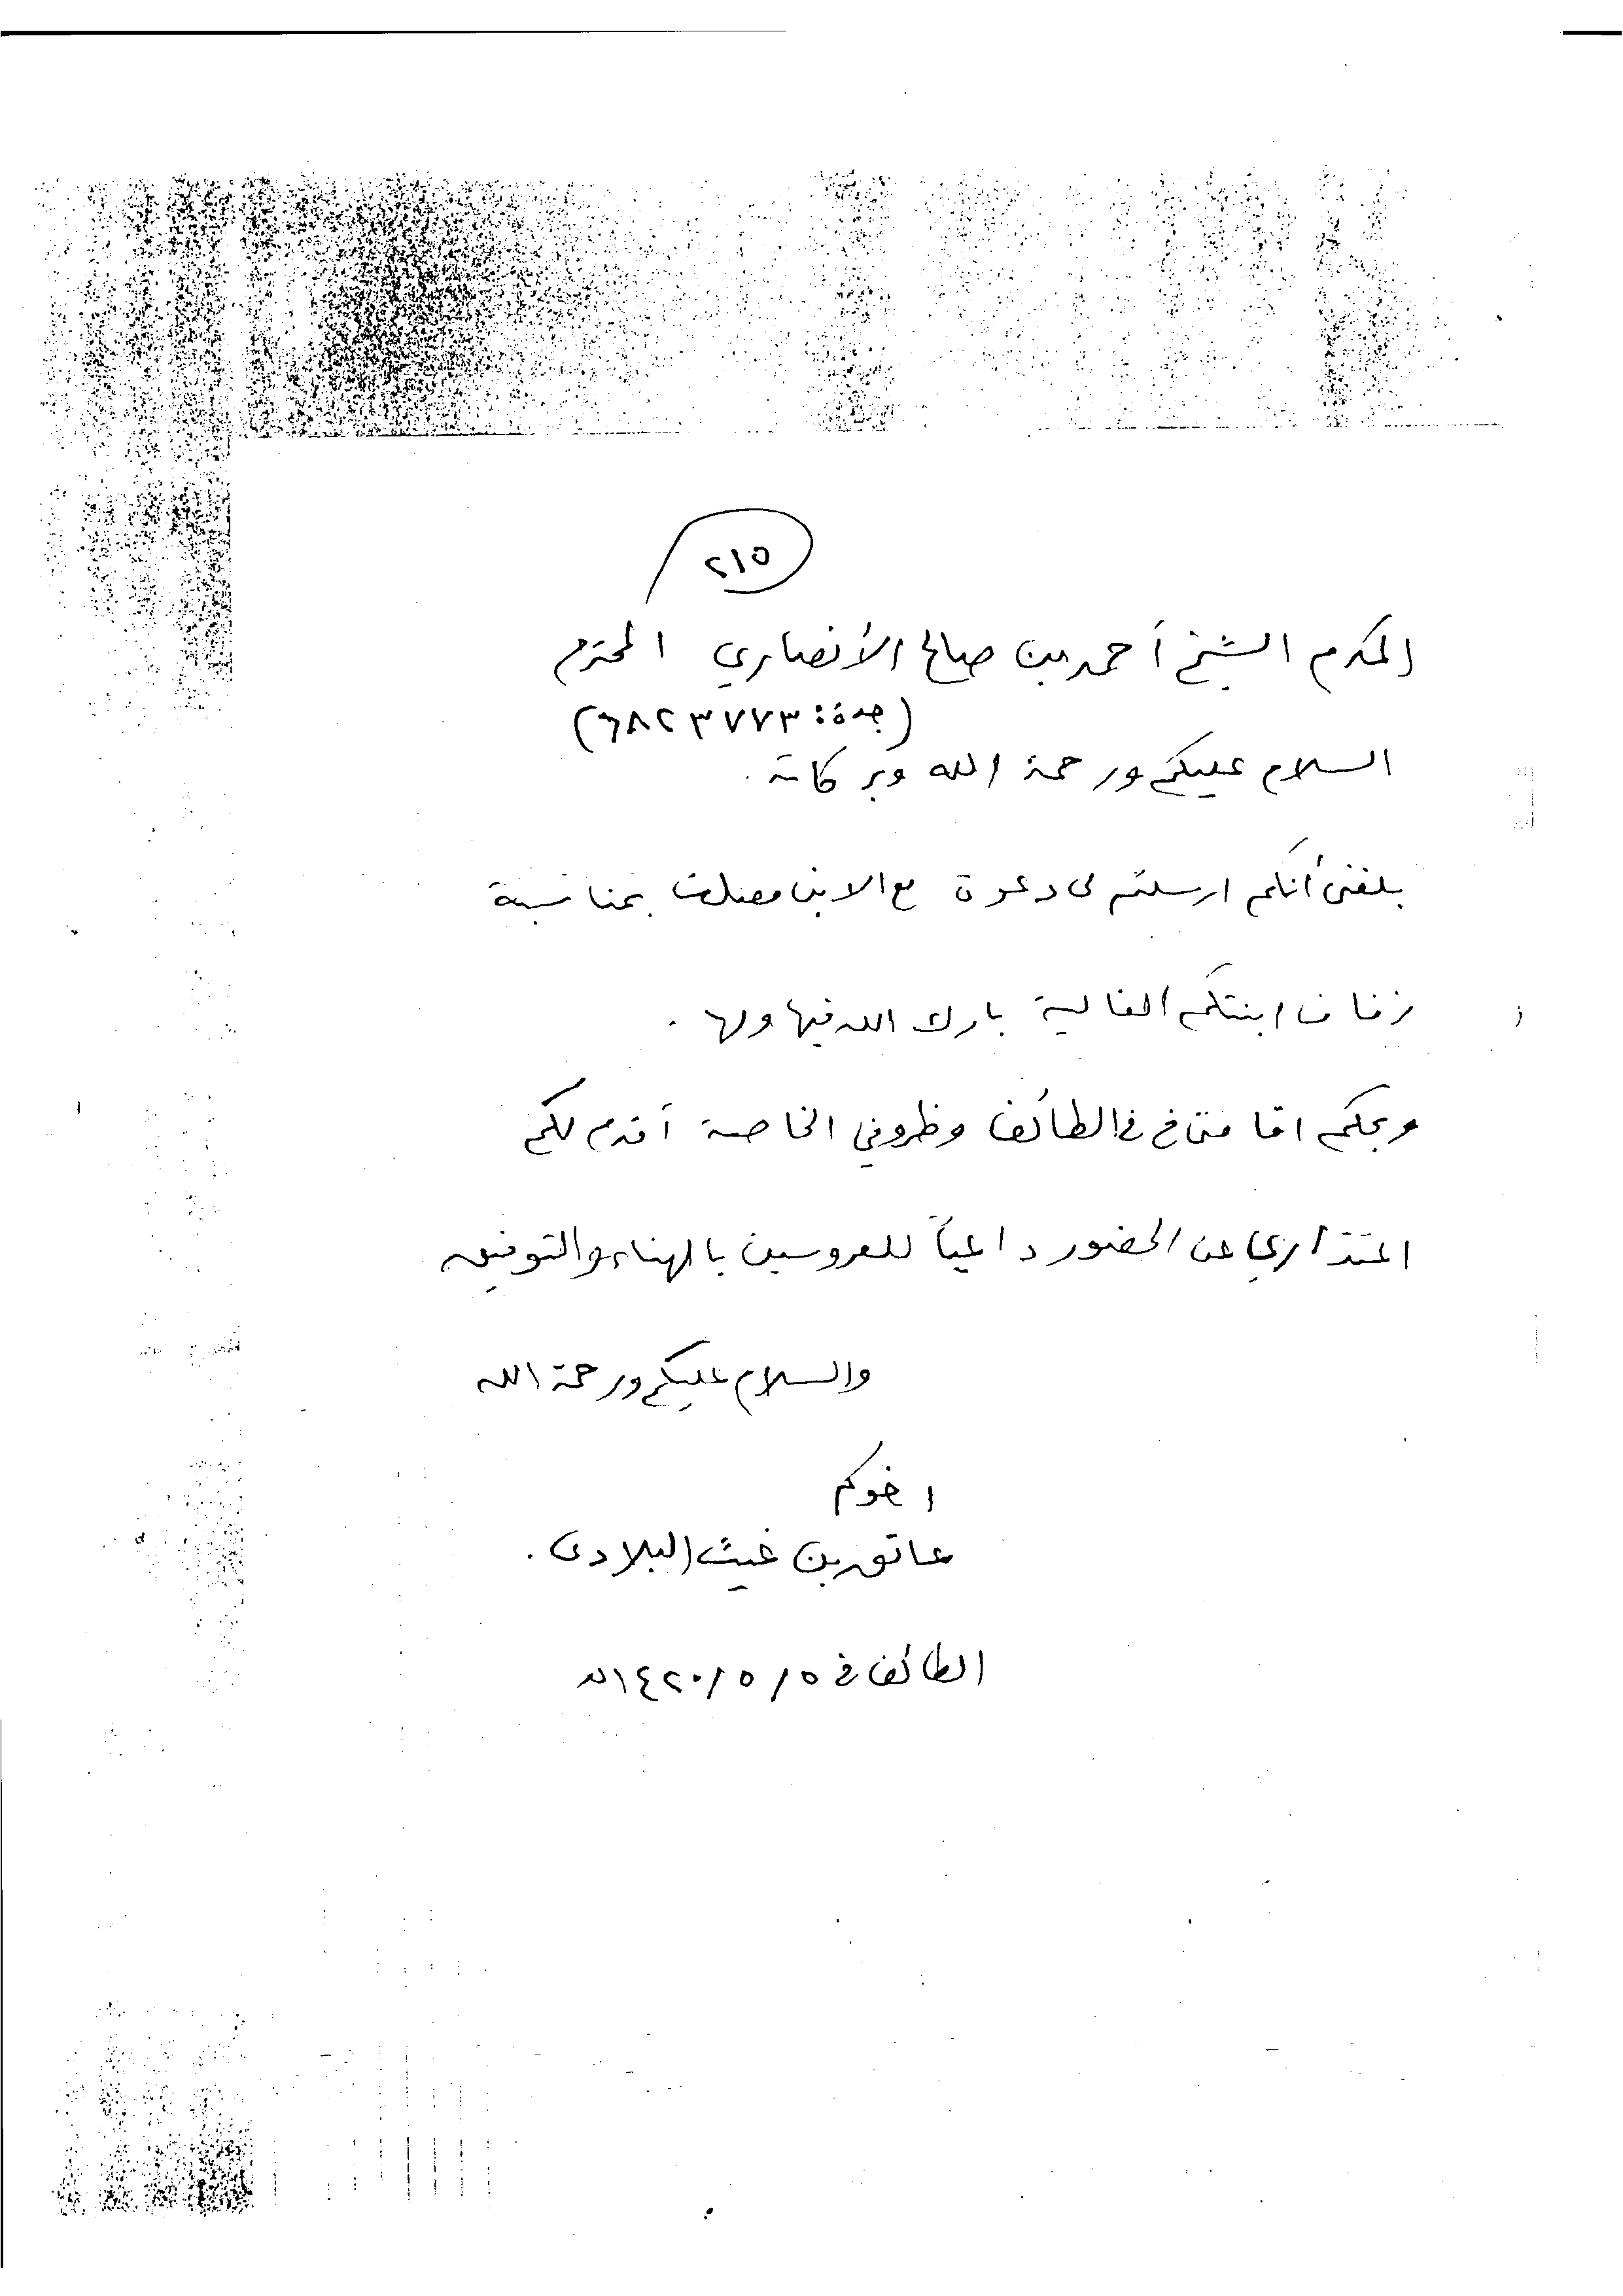 ٢١٥
المكرم الشيخ أحمد بن صالح الأنصاري المحترم
(جدة: ٦٨٢٣٧٧٣)
السلام عليكم ورحمة الله وبركاته.
بلغني أنكم ارسلتم لي دعوة مع الابن مصلت بمناسبة
زفاف ابنتكم الغالية بارك الله فيها ولها.
وبحكم اقامتي في الطائف وظروفي الخاصة أقدم لكم
اعتذاري عن الحضور داعياً للعروسين بالهناء والتوفيق
والسلام عليكم ورحمة الله
اخوكم
عاتق بن غيث البلادي.
الطائف في ١٤٢٠/٥/٥هـ